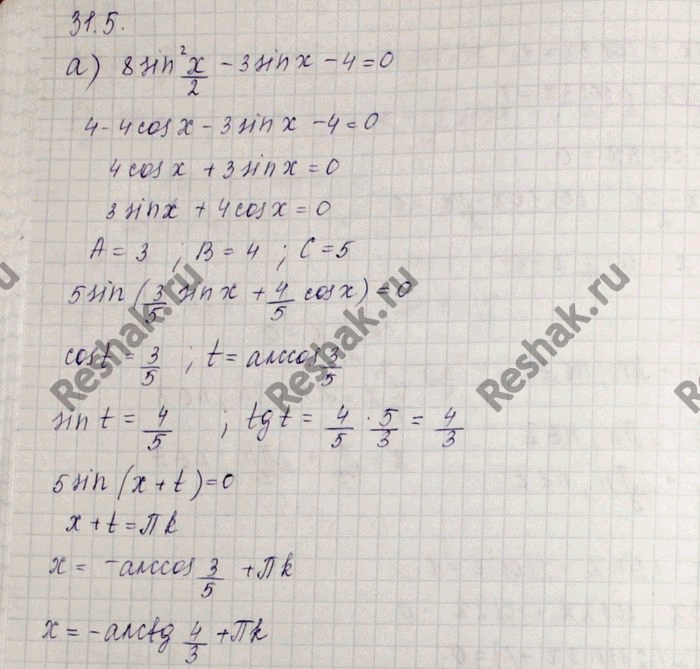 31.5.
а) 8sin²x/2 - 3sinx - 4 = 0
4 - 4cosx - 3sinx - 4 = 0
4cosx + 3sinx = 0
3sinx + 4cosx = 0
A = 3 ; B = 4 ; C = 5
5sin(3/5 sinx + 4/5 cosx) = 0
cost = 3/5 ; t = arccos 3/5
sint = 4/5 ; tgt = 4/5 · 5/3 = 4/3
5sin(x + t) = 0
x + t = Πk
x = -arccos 3/5 + Πk
x = -arctg 4/3 + Πk
Reshak.ru
Reshak.ru
Reshak.ru